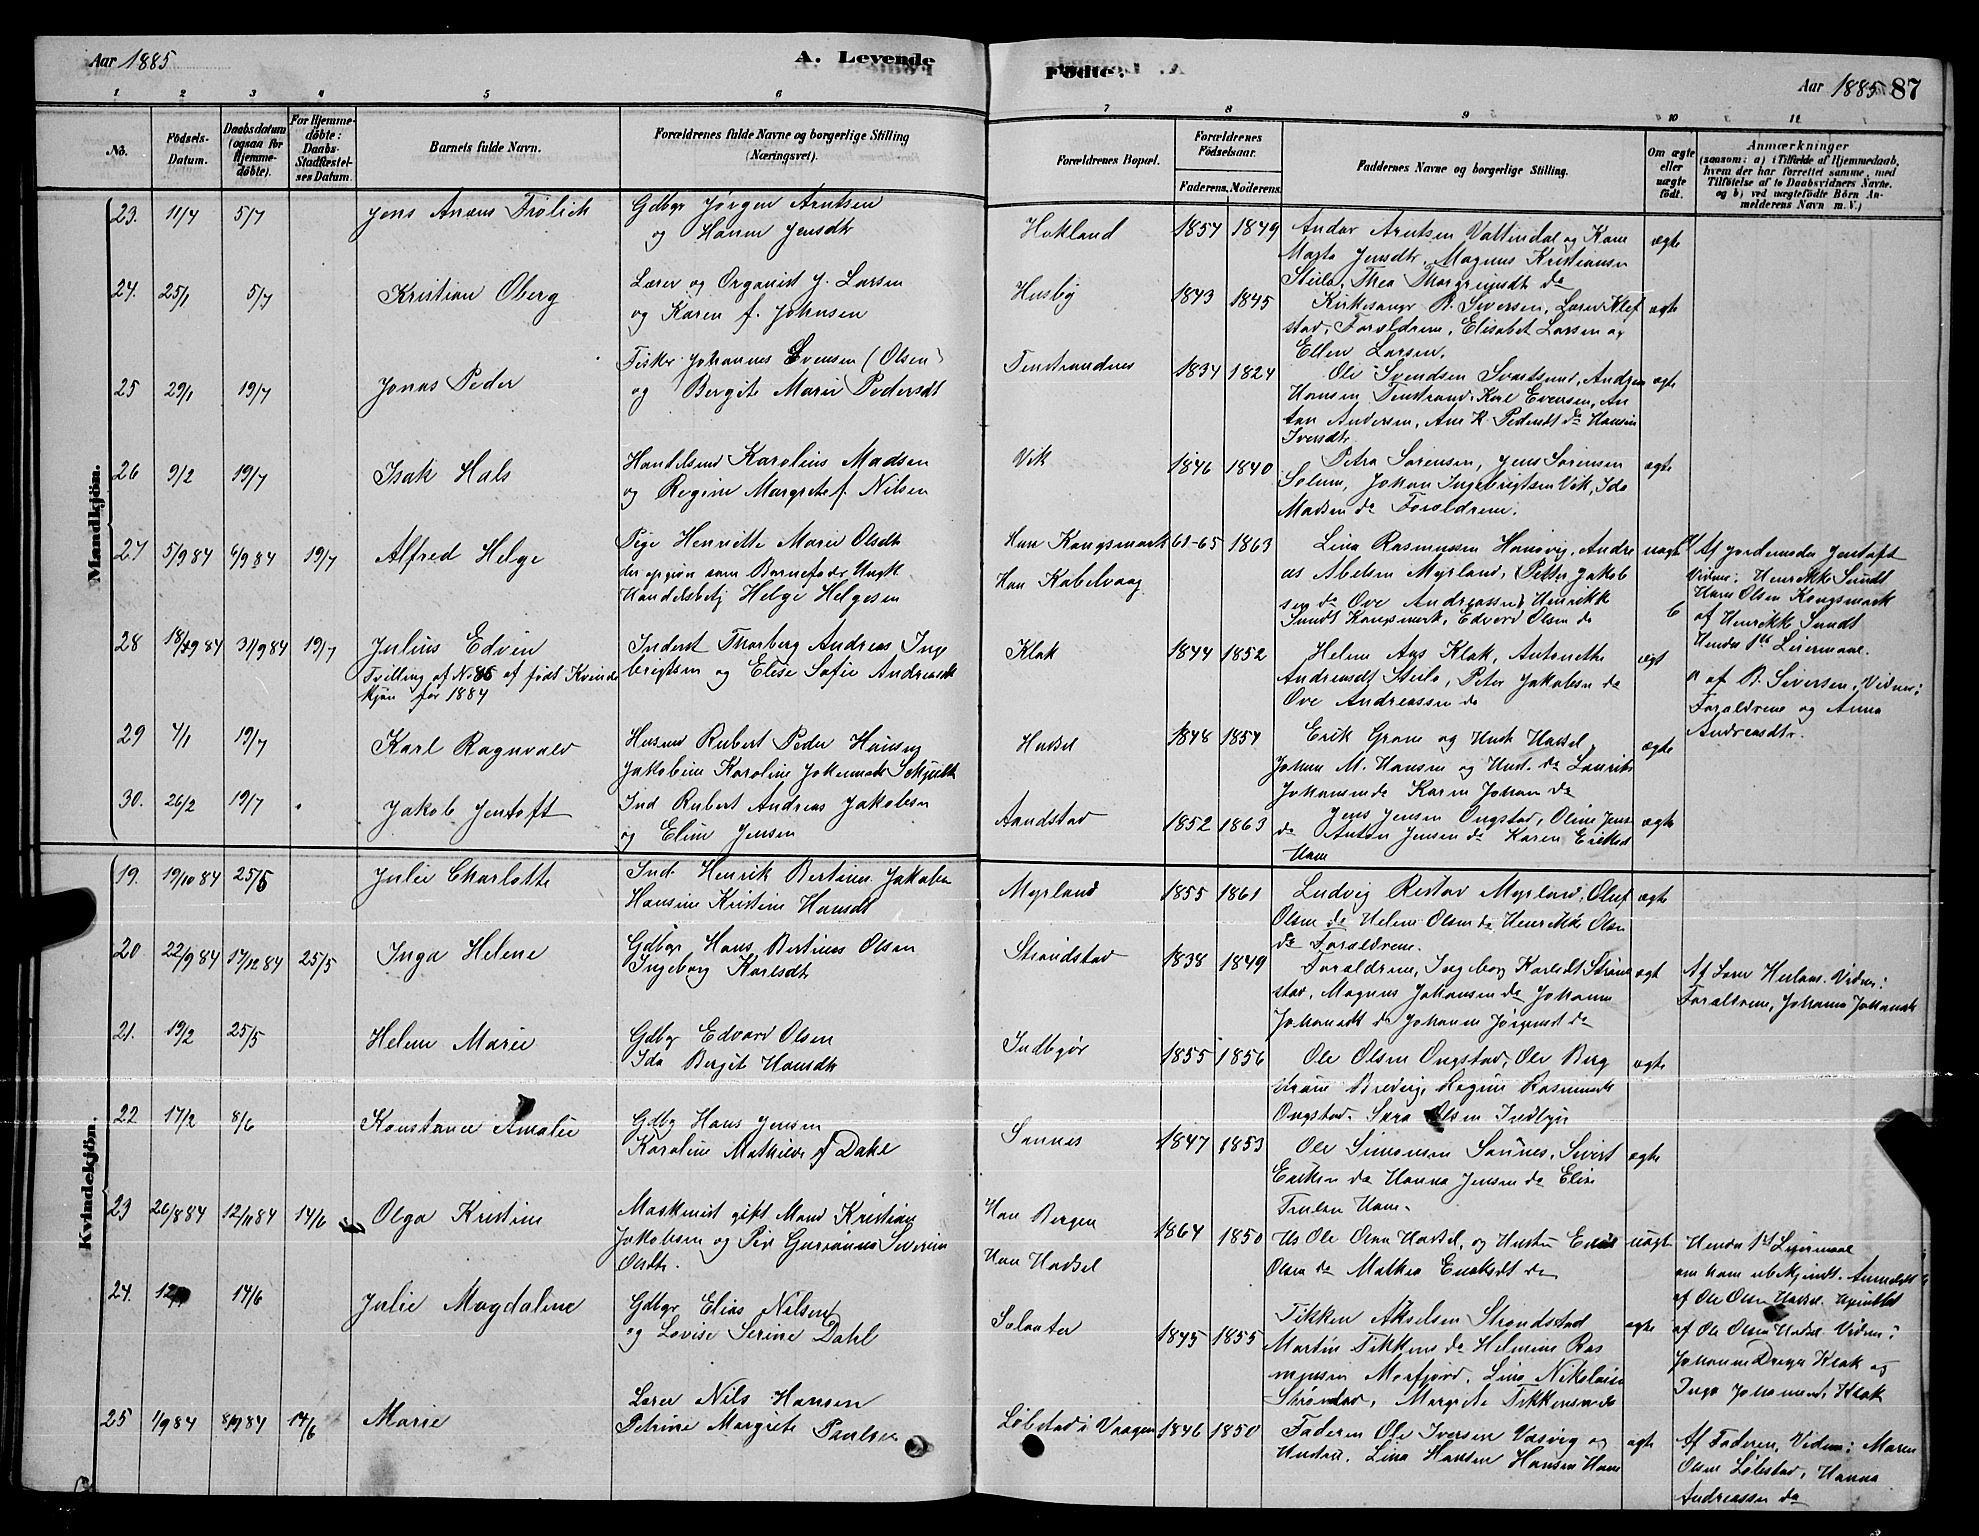 Aar 1885
A. Levende
Fødte.
Aar 1885 87
1 2 3 4 5 6 7 8 9 10 11
No.
Fødsels-Datum.
Daabsdatum (ogsaa for Hjemme-døbte).
For Hjemme-døbte: Daabs-Stadfæstel-ses Datum.
Barnets fulde Navn.
Forældrenes fulde Navne og borgerlige Stilling (Næringsvei).
Forældrenes Bopæl.
Forældrenes Fødselsaar.
Faderens. Moderens.
Faddernes Navne og borgerlige Stilling.
Om ægte eller uægte født.
Anmærkninger
(saasom: a) i Tilfælde af Hjemmedaab,
hvem der har forrettet samme, med
Tilføielse af to Daabsvidners Navne.
og b) ved uægtefødte Børn An-
melderens Navn m.V.)
Mandkjön.
23. 11/4 5/7 Jens Frølich
Gdbgr Jørgen Arntsen
og Jensdtr
Hokland 1854 1849
Andor Arntsen Vattendal og Kone
Marta Jensdtr, Magnus Kristiansen
Steilo, Thea do
ægte
24. 25/1 5/7 Kristian Oberg
Lærer og Organist J. Larsen
og Karen f. Johnsen
Husby 1843 1845
Kirkesanger B. Sivertsen, Lærer Klef
stad, Forældrene, Elisabet Larsen og
Ellen Larsen.
ægte
25 29/1 19/7 Jonas Peder
Fisker Johannes Evensen (Olsen)
og Bergite Marie Pedersdt
Finstrandnes 1834 1824
Ole Svendsen Svartsund,
Hansen Finstrand, Karl Evensen, An
ton Andersen, Ane K. Pedersdt do Hansine
Iversdtr
ægte
26 9/2 19/7 Isak Hals
Handelsmd Karolius Madsen
og Regine Margrete f. Nilsen
Vik 1846 1840
Petra Sørensen, Jens Sørensen
Solum, Johan Ingebrigtsen Vik, Ida
Madsen do Forældrene.
ægte
27 5/9 84 6/9 84 19/7 Alfred Helge
Pige Henriette Marie Olsdt
der opgiver som Barnefader Ungk.
Handelsbetj Helge Helgesen
Hun Kongsmark 61-65 1863
Han Kabelvaag
Lina Rasmussen Hanøvig, Andre
as Abelsen Myrland, Petter Jakob
sen do Ove Andreassen Henrikke
Sundt Kongsmark, Edvard Olsen do
uægte
Af Jordemoder Jentoft
Vidner: Henrikke Sundt
Hans Olsen Kongsmark
6 af Henrikke Sundt
Hendes 1ste Leiermaal.
28 18/9 84 31/9 84 19/7 Julius Edvin
Tvilling af No 86 af født Kvinde
kjøn for 1884
Inderst Thorberg Andreas Inge
brigtsen og Elise Sofie Andreasdt
Klak 1844 1852
Helene Aas Klak, Antonette
Andreasdt Steilo, Peter Jakobsen do
Ove Andreassen do
ægt
a af B. Sivertsen, Vidner:
Forældrene og Anna
Andreasdtr.
29 4/1 19/7 Karl Ragnvald
Husmd Rubert Peder Hansen
Jakobine Karoline
Hadsel 1848 1854
Erik Grane og Hust Hadsel,
Johan M. Hansen og Hust. do Laurits
Johansen do Karen Johan do
ægte
30. 26/2 19/7 Jakob Jentoft
Ind Rubert Andreas Jakobsen
og Eline Jensen
Aandstad 1852 1863
Jens Jensen Ongstad, Oline Jens
do Anton Jensen do Karen
Ham
ægte
Kvindekjön.
19. 19/10 84 25/5 Julie Charlotte
Ind. Henrik Bertinus Jakobsen
Hansine Kristine Hansdt
Myrland 1855 1861
Ludvig Restad Myrland, Oluf
Olsen do Helene Olsen do Henrikke Olsen
do Forældrene.
ægte
20 22/9 84 17/12 84 25/5 Inga Helene
Gdbgr Hans Bertinus Olsen
Ingeborg Karlsdt
Strandstad 1838 1849
Forældrene, Ingeborg Karlsdt Strand
stad, Magnus Johansen do Johanne
Johansdt do Johanne Jørgensdt do
ægt
Af Lærer Vidner:
Forældrene, Johanna Johansdt
21. 19/2 25/5 Helene Marie
Gdbgr Edvard Olsen
Ida Bergit Hansdtr
Indbgør 1855 1856
Ole Olsen Ongstad, Ole Berg
strøm Bredvig, Regine Rasmussen
Ongstad. Sara Olsen Indbgør
ægte
22 17/2 8/6 Konstance Amalie
Gdbg Hans Jensen
Karoline Mathilde f Dahl
Sannes 1847 1853
Ole Simonsen Sannes, Sivert
Eriksen do Hanna Jensen do Elise
Ham.
ægte
23 26/8 84 12/11 84 14/6 Olga Kristine
Maskinist gift Mand Kristian
Jakobsen og Severine
Olsdtr.
Han Bergen
Hun Hadsel
1864 1850
Hs Ole Olsen Hadsel, og Hustru
Olsen do Mathea do
uægte
Hendes 1st Leiermaal
om ham ubekjendt. Anmeldt
af Ole Olsen Hadsel. Hjemdøbt
af Ole Olsen Hadsel. Vidner:
Johanne Klak og
Inga Klak
24. 14/6 Julie Magdaline
Gdbgr Elias Nilsen
og Lovise Serine Dahl
1845 1855
Tikken Akselsen Strandstad
Martin Tikkens do Helmine Ras
mussen Morfjord, Lina Nikolaisen
Strandstad, Margrete Tikkensen do
ægte
25 1/9 84 8/9 84 14/6 Marie
Lærer Nils Hansen
Petrine Margrete Paulsen
Løbstad i Vaagan 1846 1850
Faderen Ole Iversen Vasvig og
Hustru. Lina Hansen Hansen Ham
ægte
Af Faderen, Vidner: Maren
Olsen Løbstad, Hanna
Andreassen do